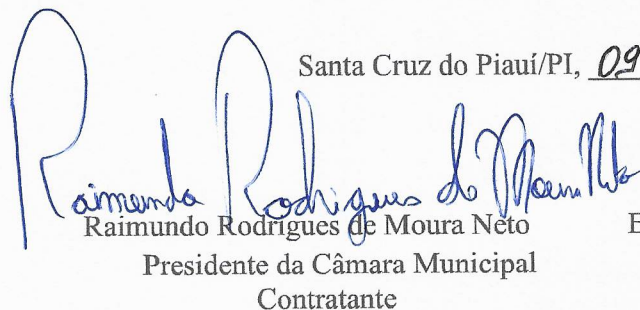 Santa Cruz do Piauí/PI, 09
Raimundo Rodrigues de Moura Neto
Raimundo Rodrigues de Moura Neto E
Presidente da Câmara Municipal
Contratante